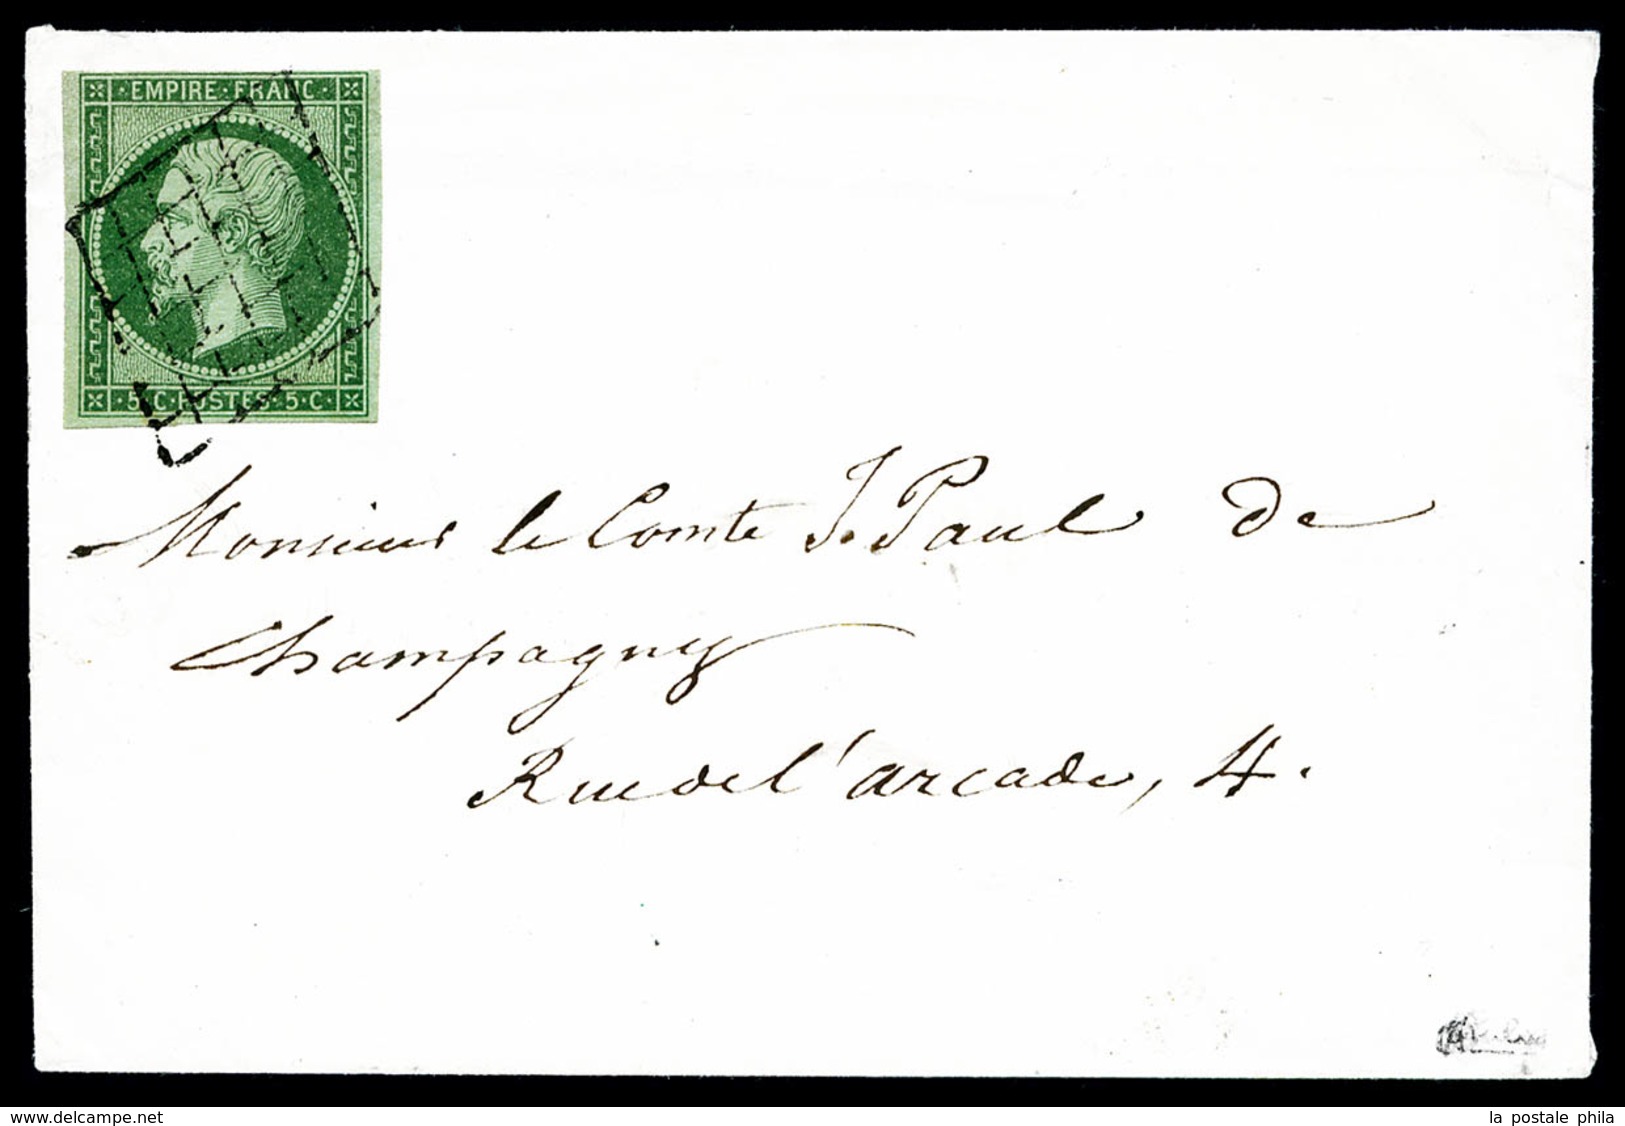 EMPIRE · FRANC ·
· 5 · C · POSTES · 5 · C ·
Monsieur le Comte J. Paul de
Champagny
Rue de l'arcade, 4.
www.delcampe.net
la postale phila